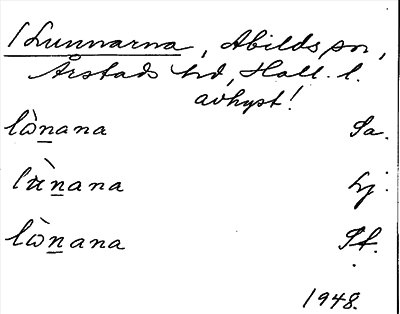 Lunnarna, Abilds sn,
Årstads hd, Hall. l.
avhyst!
lò̀nana Sa.
lʉ̀nana Lj.
lò̀nana St.
1948.